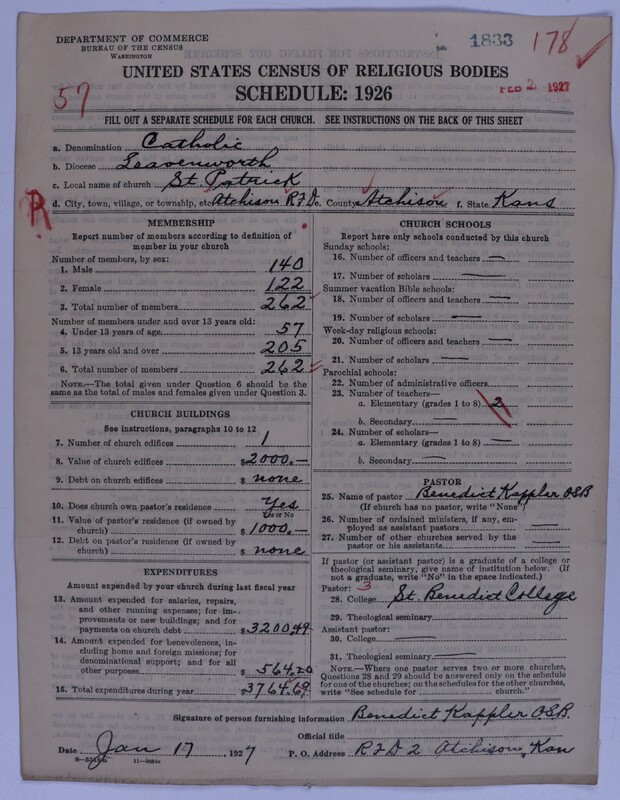 DEPARTMENT OF COMMERCE
BUREAU OF THE CENSUS
WASHINGTON
1833
178
UNITED STATES CENSUS OF RELIGIOUS BODIES
SCHEDULE: 1926
57
FEB 2 1927
FILL OUT A SEPARATE SCHEDULE FOR EACH CHURCH. SEE INSTRUCTIONS ON THE BACK OF THIS SHEET
a. Denomination Catholic
b. Diocese Leavenworth
c. Local name of church St. Patrick
d. City, town, village, or township, etc Atchison RFD e. County Atchison f. State Kans
R
MEMBERSHIP
Report number of members according to definition of
member in your church
Number of members, by sex:
1. Male 140
2. Female 122
3. Total number of members 262
Number of members under and over 13 years old:
4. Under 13 years of age 57
5. 13 years old and over 205
6. Total number of members 262
NOTE.—The total given under Question 6 should be the
same as the total of males and females given under Question 3.
CHURCH BUILDINGS
See instructions, paragraphs 10 to 12
7. Number of church edifices 1
8. Value of church edifices $ 2000.—
9. Debt on church edifices $ none
10. Does church own pastor's residence Yes
Yes or No
11. Value of pastor's residence (if owned by
church) $ 1000.—
12. Debt on pastor's residence (if owned by
church) $ none
EXPENDITURES
Amount expended by your church during last fiscal year
13. Amount expended for salaries, repairs,
and other running expenses; for im-
provements or new buildings; and for
payments on church debt $ 3200.49
14. Amount expended for benevolences, in-
cluding home and foreign missions; for
denominational support; and for all
other purposes $ 564.20
15. Total expenditures during year $ 3764.69
CHURCH SCHOOLS
Report here only schools conducted by this church
Sunday schools:
16. Number of officers and teachers —
17. Number of scholars —
Summer vacation Bible schools:
18. Number of officers and teachers —
19. Number of scholars —
Week-day religious schools:
20. Number of officers and teachers —
21. Number of scholars —
Parochial schools:
22. Number of administrative officers
23. Number of teachers—
a. Elementary (grades 1 to 8) 2
b. Secondary —
24. Number of scholars—
a. Elementary (grades 1 to 8) —
b. Secondary —
PASTOR
25. Name of pastor Benedict Kappler OSB
(If church has no pastor, write "None")
26. Number of ordained ministers, if any, em-
ployed as assistant pastors —
27. Number of other churches served by the
pastor or his assistants —
If pastor (or assistant pastor) is a graduate of a college or
theological seminary, give name of institution below. (If
not a graduate, write "No" in the space indicated.)
Pastor: 3
28. College St. Benedict College
29. Theological seminary
Assistant pastor:
30. College —
31. Theological seminary —
NOTE.—Where one pastor serves two or more churches,
Questions 28 and 29 should be answered only on the schedule
for one of the churches; on the schedules for the other churches,
write "See schedule for church."
Signature of person furnishing information Benedict Kappler OSB.
Official title
Date Jan 17, 1927 P. O. Address RFD 2 Atchison, Kan